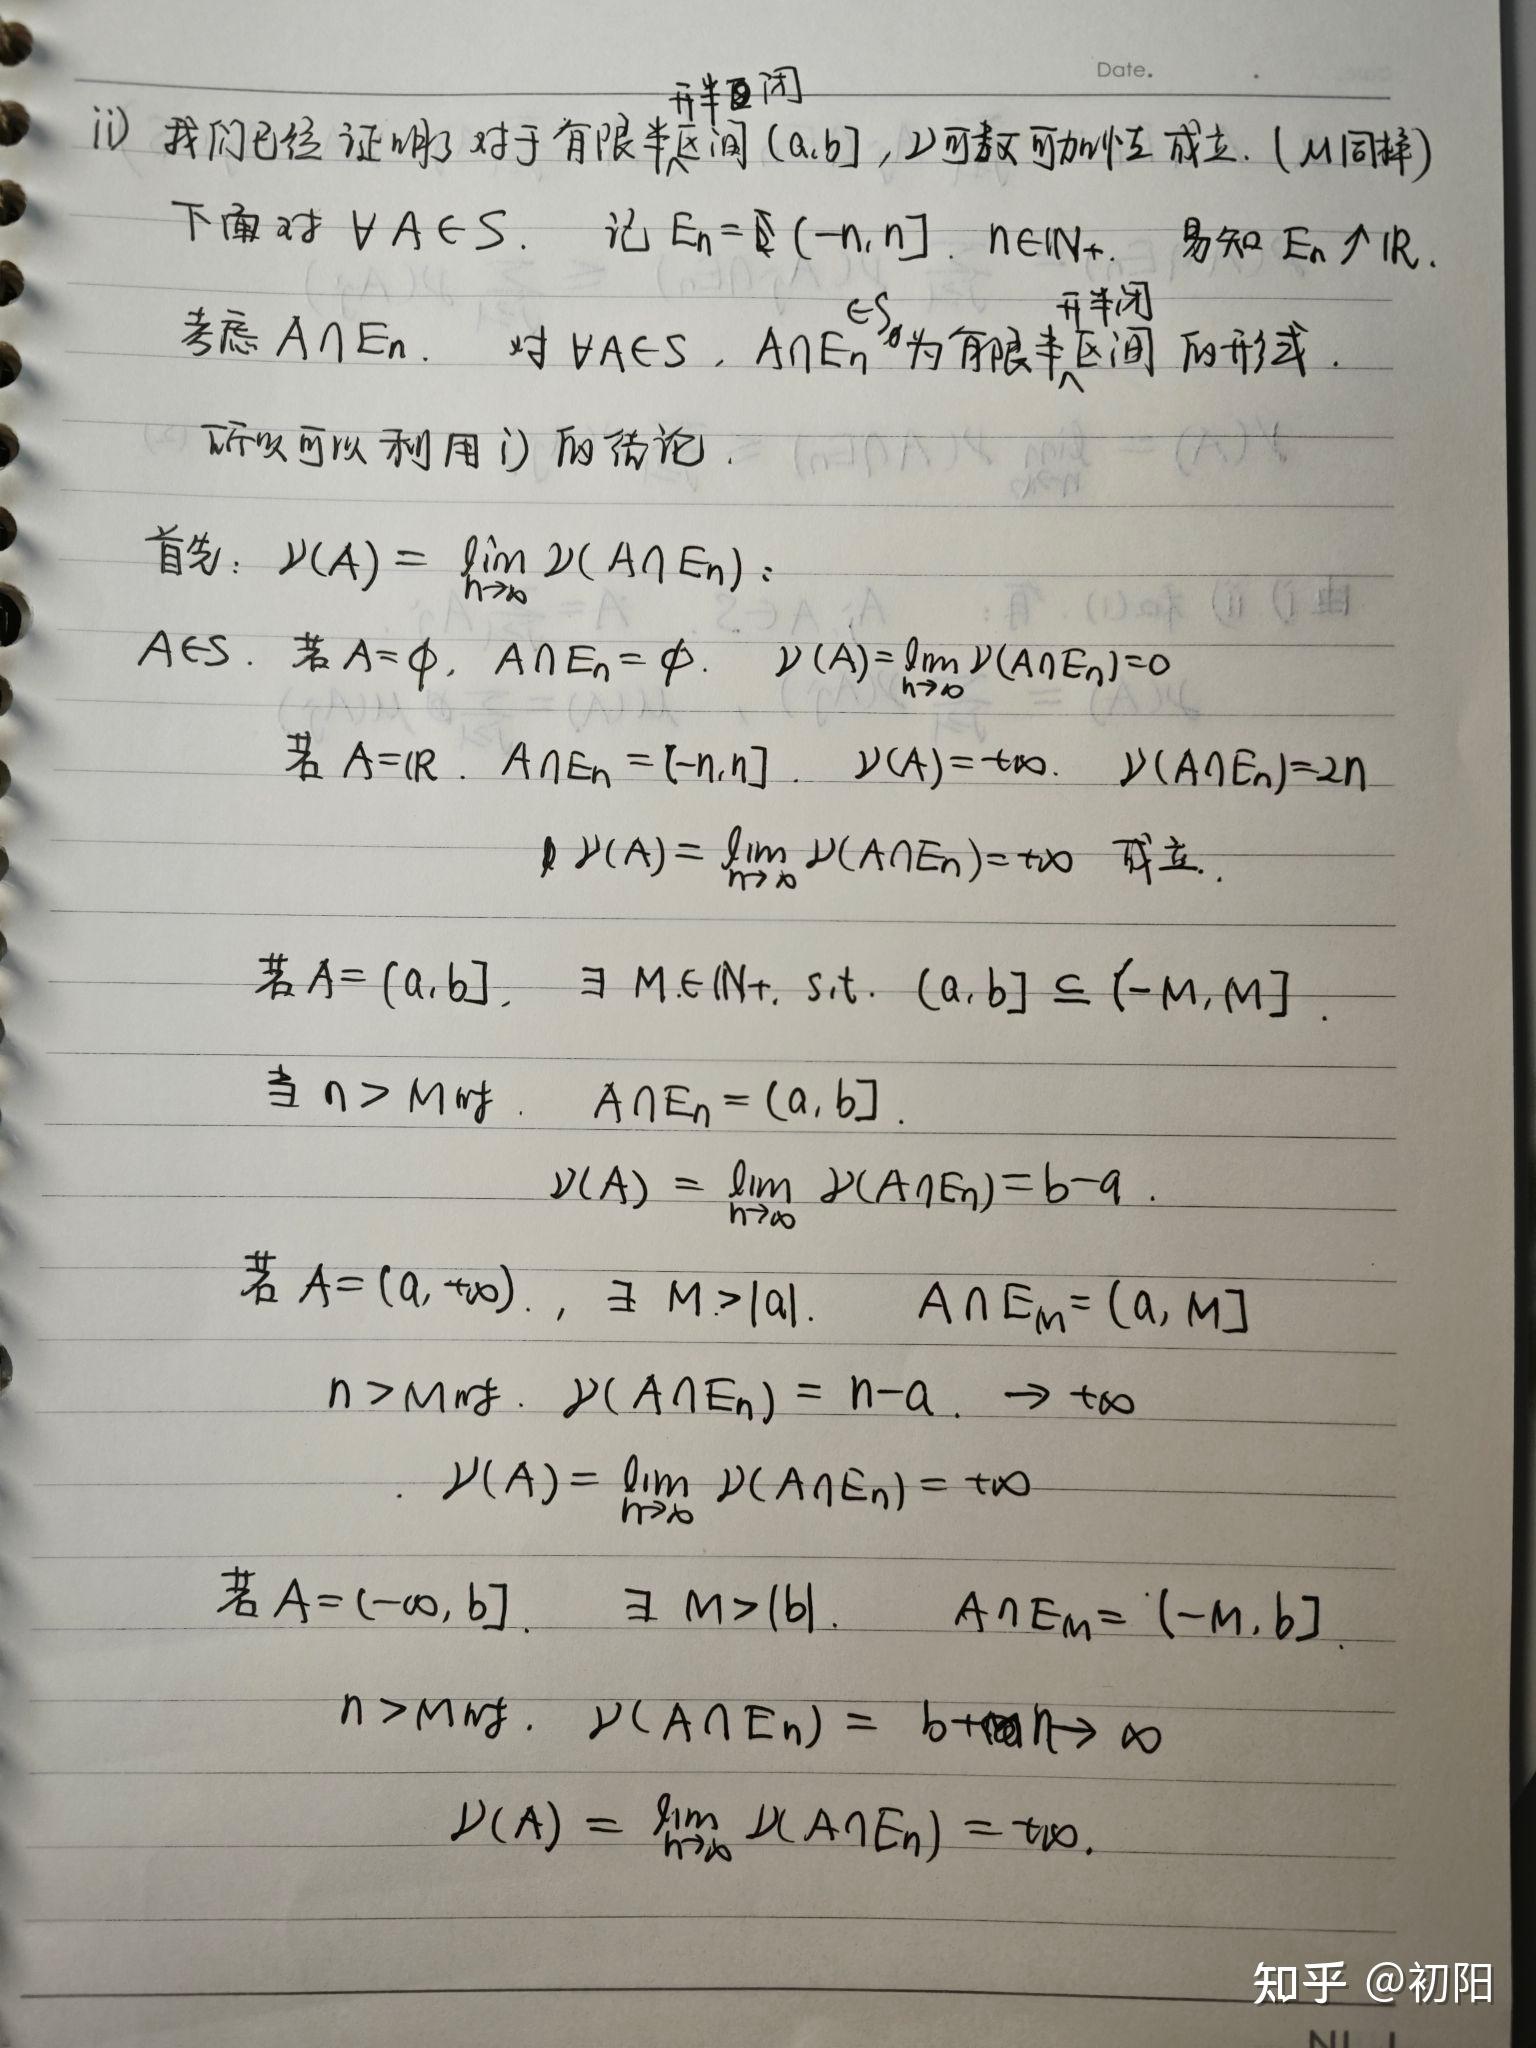 Date.
开半闭
ii) 我们已经证明了对于有限半区间 (a,b], ν可数可加性成立. (μ同样)
下面对 ∀A∈S. 记 En = (-n,n]. n∈ℕ+. 易知 En↑ℝ.
∈S 开半闭
考虑 A∩En. 对 ∀A∈S, A∩En 为有限半区间的形式.
所以可以利用 i) 的结论.
首先: ν(A) = lim n→∞ ν(A∩En):
A∈S. 若 A=φ, A∩En=φ. ν(A)=lim n→∞ ν(A∩En)=0
若 A=ℝ. A∩En=(-n,n]. ν(A)=+∞. ν(A∩En)=2n
ν(A)=lim n→∞ ν(A∩En)=+∞ 成立.
若 A=(a,b], ∃ M∈ℕ+. s.t. (a,b] ⊆ (-M,M].
当 n>M 时. A∩En=(a,b].
ν(A) = lim n→∞ ν(A∩En)=b-a.
若 A=(a,+∞)., ∃ M>|a|. A∩EM=(a,M]
n>M时. ν(A∩En) = n-a. → +∞
ν(A)=lim n→∞ ν(A∩En)=+∞
若 A=(-∞,b]. ∃ M>|b|. A∩EM=(-M,b].
n>M时. ν(A∩En) = b+n→∞
ν(A) = lim n→∞ ν(A∩En)=+∞.
知乎 @初阳